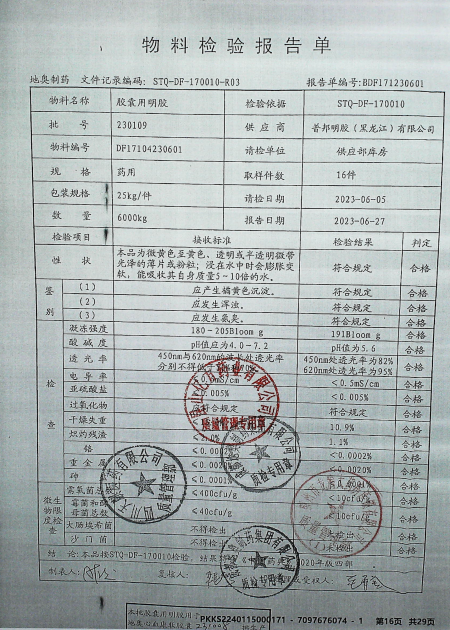 物料检验报告单
地奥制药 文件记录编码: STQ-DF-170010-R03 报告单编号:BDF171230601
物料名称 胶囊用明胶 检验依据 STQ-DF-170010
批 号 230109 供 应 商 普邦明胶（黑龙江）有限公司
物料编号 DF17104230601 请检单位 供应部库房
规 格 药用 取样件数 16件
包装规格 25kg/件 请检日期 2023-06-05
数 量 6000kg 报告日期 2023-06-27
检验项目 接收标准 检验结果 判定
性 状 本品为微黄色至黄色、透明或半透明微带光泽的薄片或粉粒；浸在水中时会膨胀变软，能吸收其自身质量5～10倍的水。 符合规定 合格
鉴别 (1) 应产生橘黄色沉淀。 符合规定 合格
(2) 应发生浑浊。 符合规定 合格
(3) 应发生氨臭。 符合规定 合格
检查
凝冻强度 180-205Bloom g 191Bloom g 合格
酸碱度 pH值应为4.0-7.2 pH值为5.6 合格
透光率 450nm与620nm的波长处透光率分别不得低于 450nm处透光率为82% 620nm处透光率为95% 合格
电导率 mS/cm ＜0.5mS/cm 合格
亚硫酸盐 0.005% ＜0.005% 合格
过氧化物 符合规定 符合规定 合格
干燥失重 10.9% 合格
炽灼残渣 1.1% 合格
铬 ＜0.0002% 合格
重金属 ＜0.0020% 合格
砷 合格
微生物限度检查
需氧菌总数 ≤400cfu/g ＜10cfu/g 合格
霉菌和酵母菌总数 ≤40cfu/g ＜10cfu/g 合格
大肠埃希菌 不得检出 未检出 合格
沙门菌 不得检出 未检出 合格
结 论:本品按STQ-DF-170010检验，结果 2020年版四部
制表人: 复核人: 受权人:
质量管理专用章
质量管理部
质检专用章
本批胶囊用明胶用于
PKKS2240115000171 - 7097676074 - 1 第16页 共29页